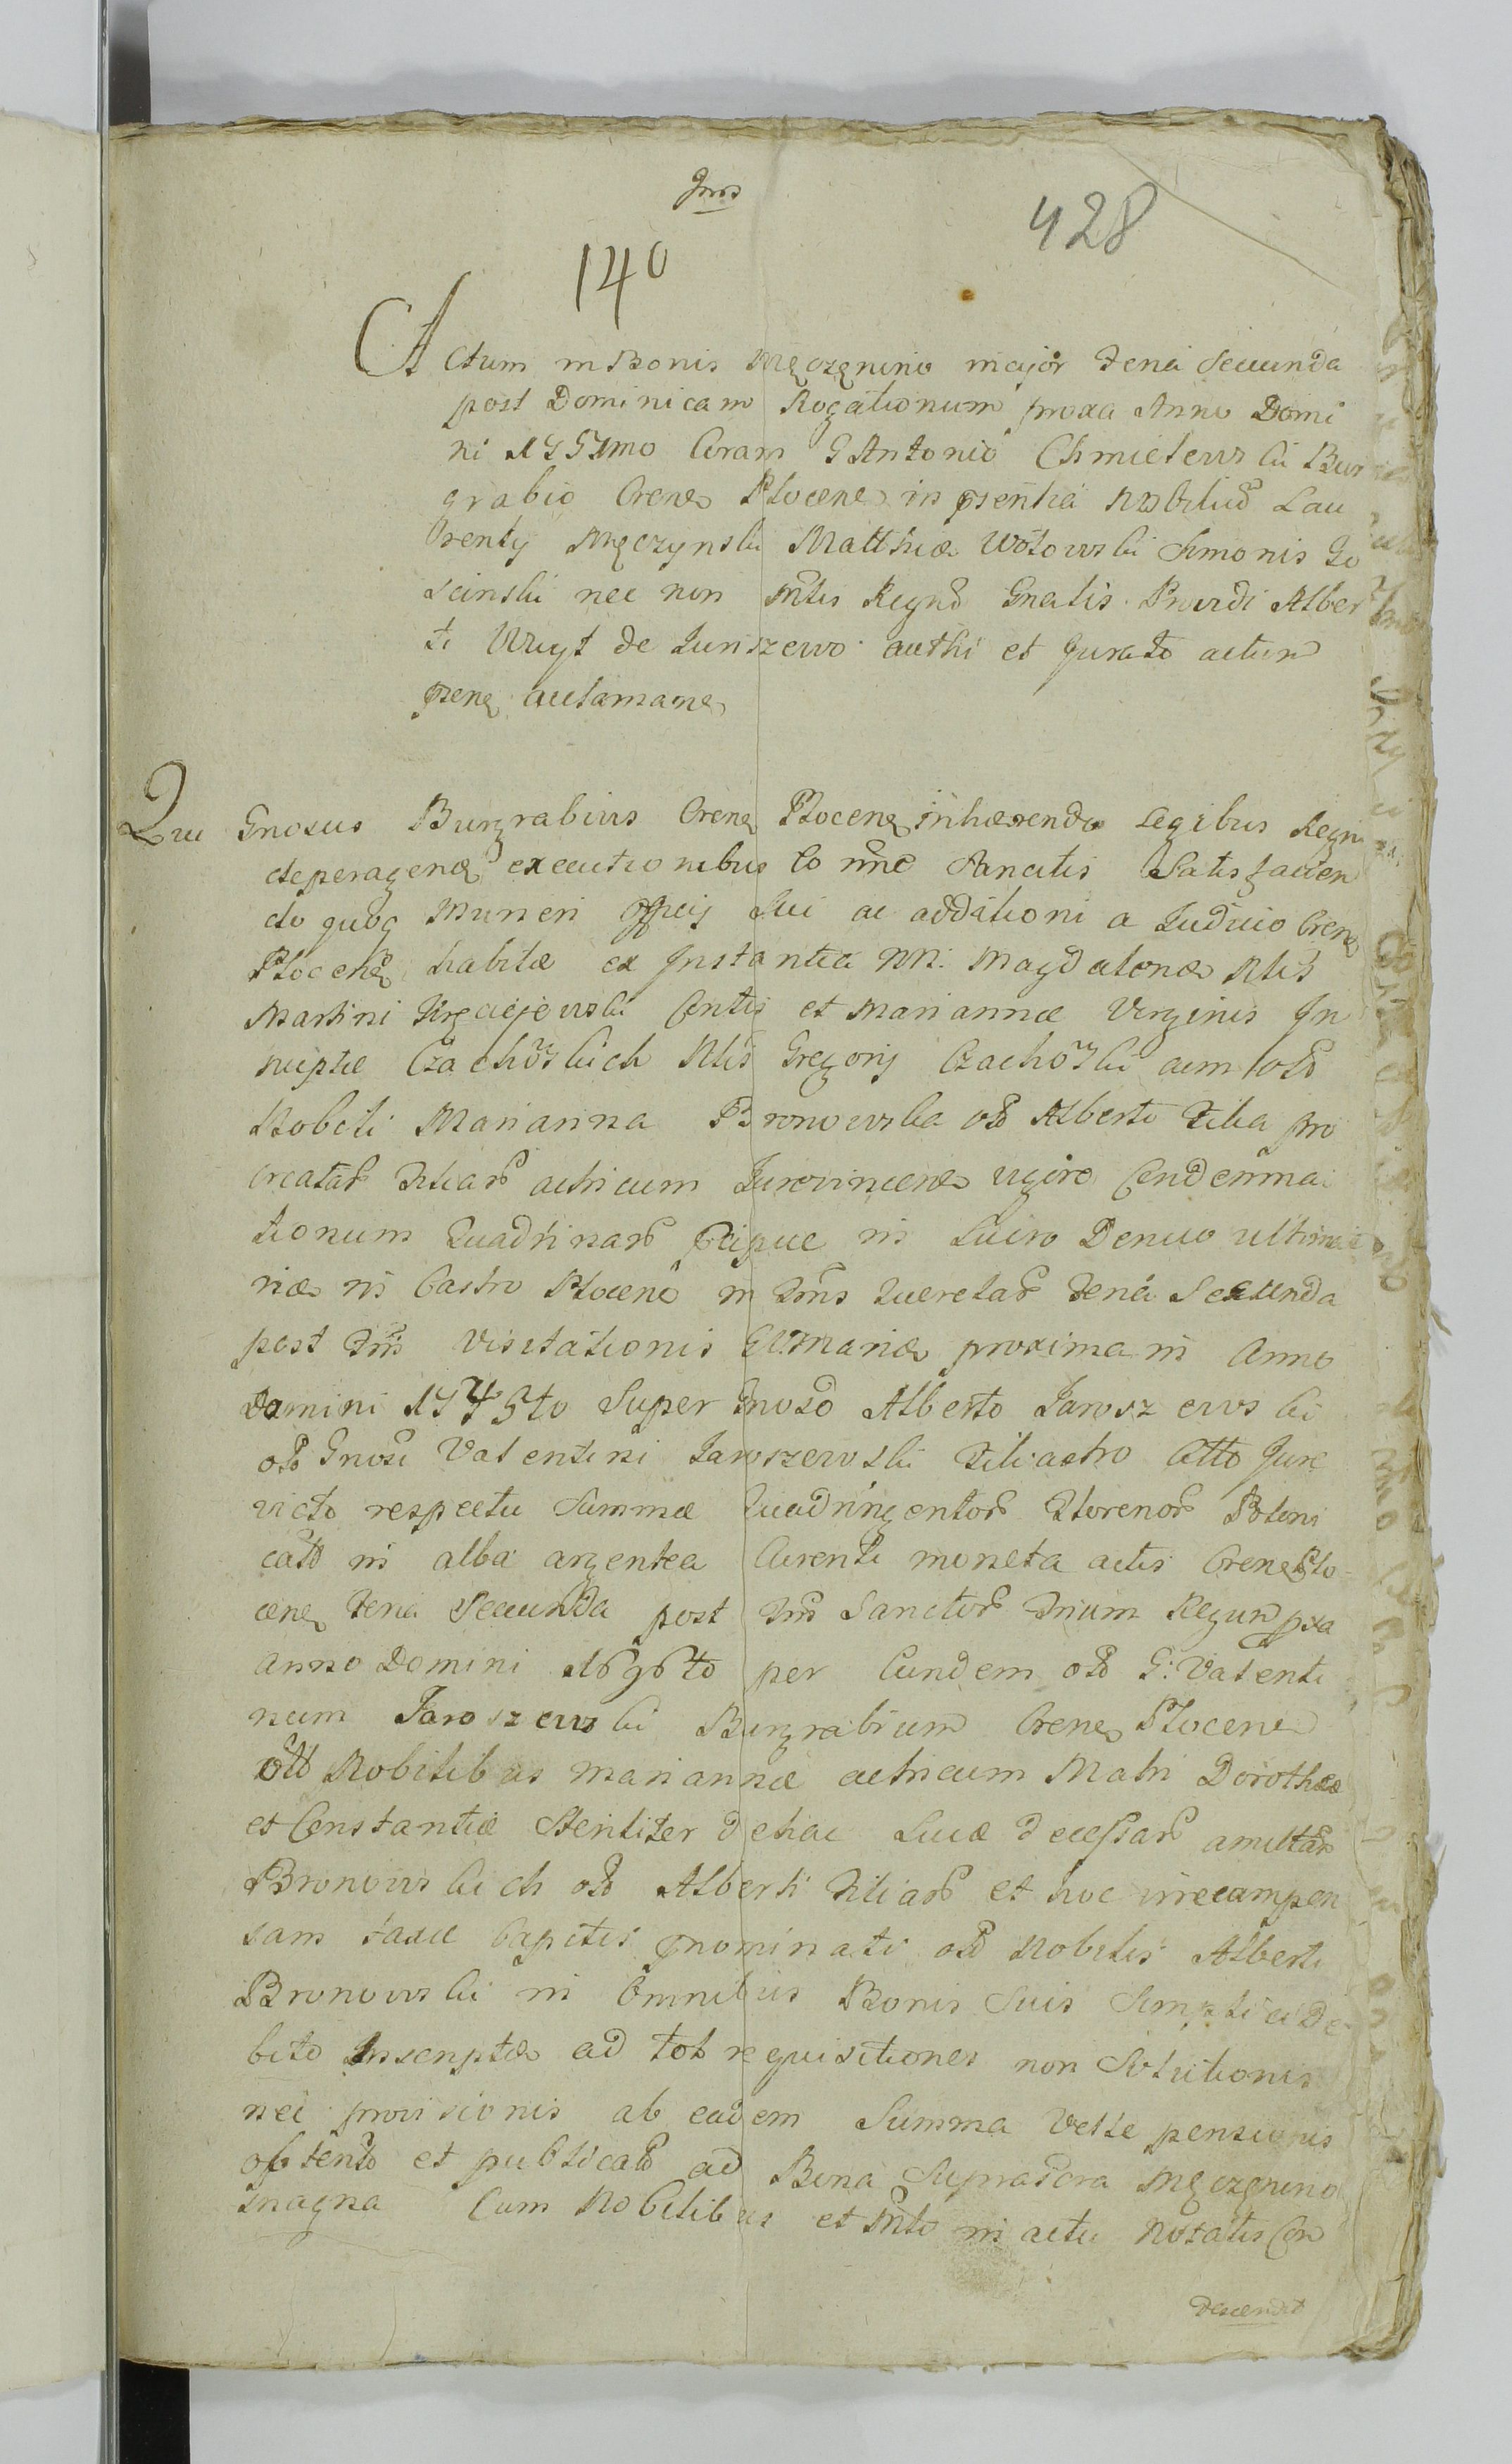 Jnos
428
140
Actum in Bonis Męczęnino major Feria Secunda
post Dominicam Rogationum proxa Anno Domi
ni 1757mo Coram G Antonio Chmielewski Bur
grabio Crene Plocene in psentia Nobiliu Lau
renty Męczynski Matthiæ Wotowski Simonis Go
scinski nec non Mlis Regno Gnalis Providi Alber
ti Woyt de Juriszewo authi et Jurato actum
psene aectamane
Qui Gnosus Burgrabius Crene Plocene inhærendo Legibus Regni
de peragend executionibus eo nne Sancitis Satisfacien
do quoq Muneri Officy Sui ac additioni a Judicio Crene
Plocene habitæ ex Instantia NN. Magdalenæ Nlis
Martini Krzaciejewski Cntis et Mariannæ Virginis In
nuptæ Czachorskich Nlis Gregorij Czachorski cum olo
Nobili Marianna Bronowska olo Alberti Filia pro
creatar Filiar actricum Jurevincene vigore Condemna
tionum Quadrinar pcipue in Lucro Denuo ultima
riæ in Castro Plocens in Tmis Querelar Feria Secunda
post Fm Visitationis BVMariæ proxima in Anno
Domini 1745to Super Gnoso Alberto Jaroszewski
olo Gnosi Valentini Jaroszewski Filiastro Ctto Jure
victo respectu Summæ Quadringentor Florenor Poloni
calo in alba argentea Curenti moneta actis Crene Plo
cene Feria Secunda post Fm Sanctor Trium Regum pxa
Anno Domini 1696to per Eundem olo G: Valenti
num Jaroszewski Burgrabium Crene Plocene
olo Nobilibus Mariannæ actricum Matri Dorotheæ
et Constantiæ Steriliter de hac Luce decessar amittar
Bronowskich olo Alberti Filiar et hoc in recompen
sam Capitis pnominati olo Nobilis Alberti
Bronowski in Omnibus Bonis Suis Simplici De
bito Inscriptæ ad tot requisitiones non Solutionis
nec provisionis ab eadem Summa Velle pensionis
obtento et publicato ad Bona Supradcra Męczęnino
magna Cum Nobilibus et Mnlo in actu Notatis Con
descendit